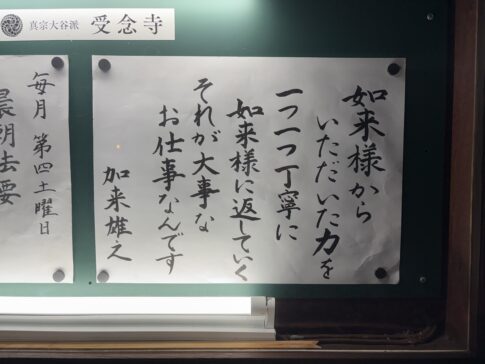 真宗大谷派 受念寺
如来様から
いただいた力を
一つ一つ丁寧に
如来様に返していく
それが大事な
お仕事なんです
加来雄之
毎月 第四土曜日
晨朝法要